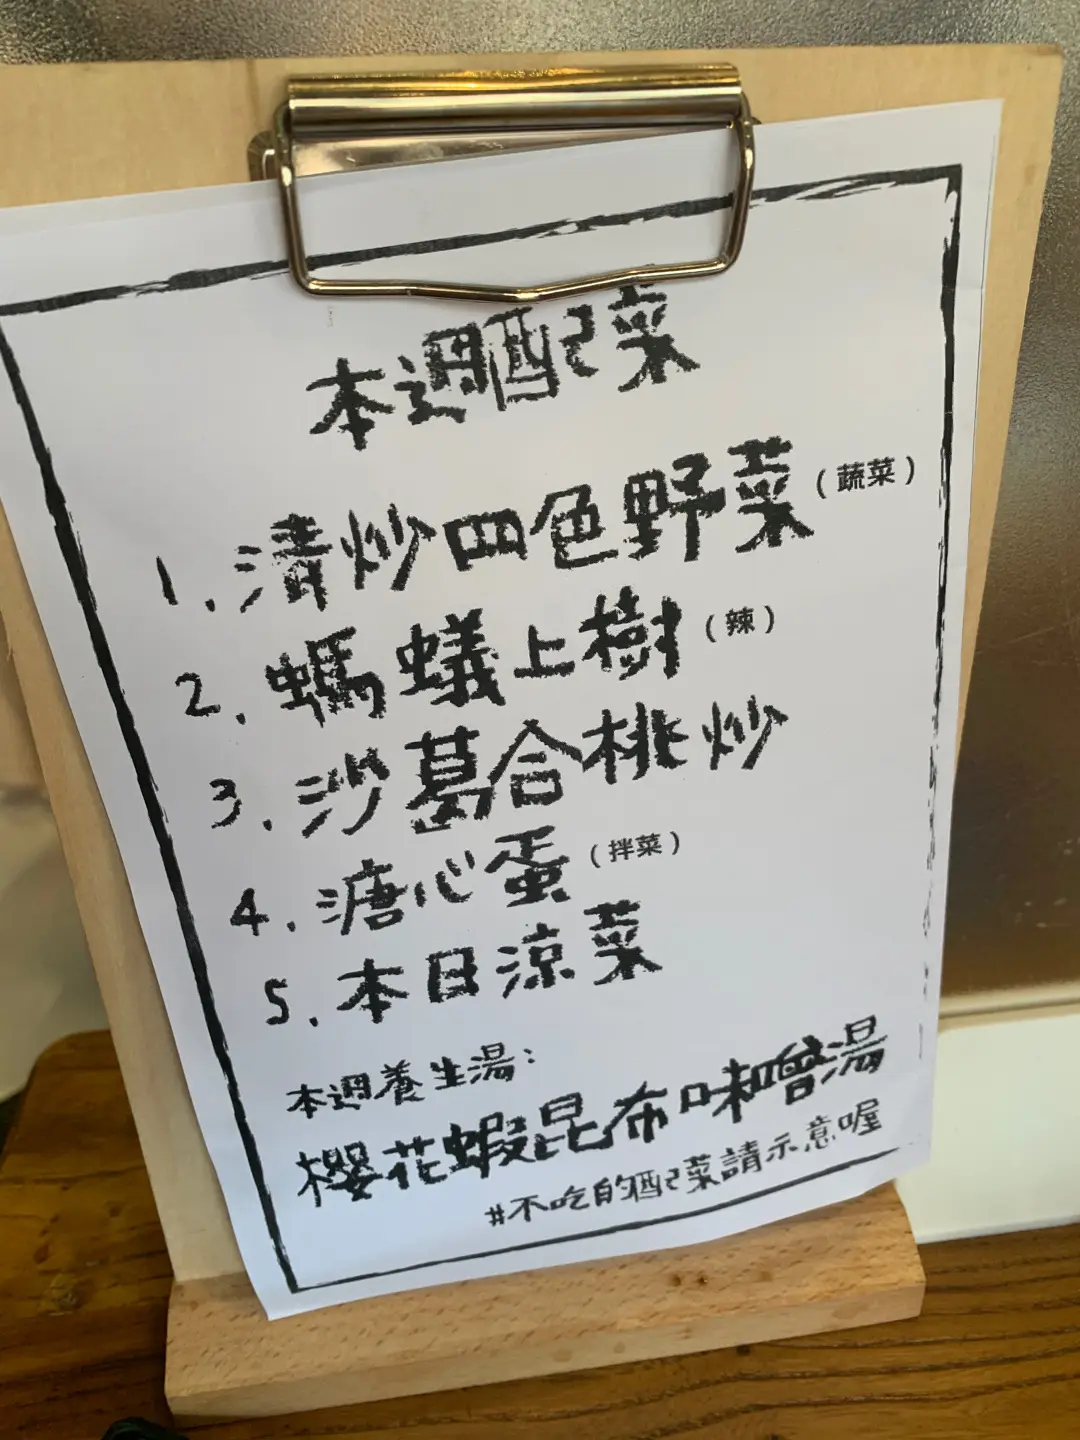 本週配菜
1. 清炒四色野菜（蔬菜）
2. 螞蟻上樹（辣）
3. 沙葛合桃炒
4. 溏心蛋（拌菜）
5. 本日涼菜
本週養生湯：
櫻花蝦昆布味噌湯
#不吃的配菜請示意喔